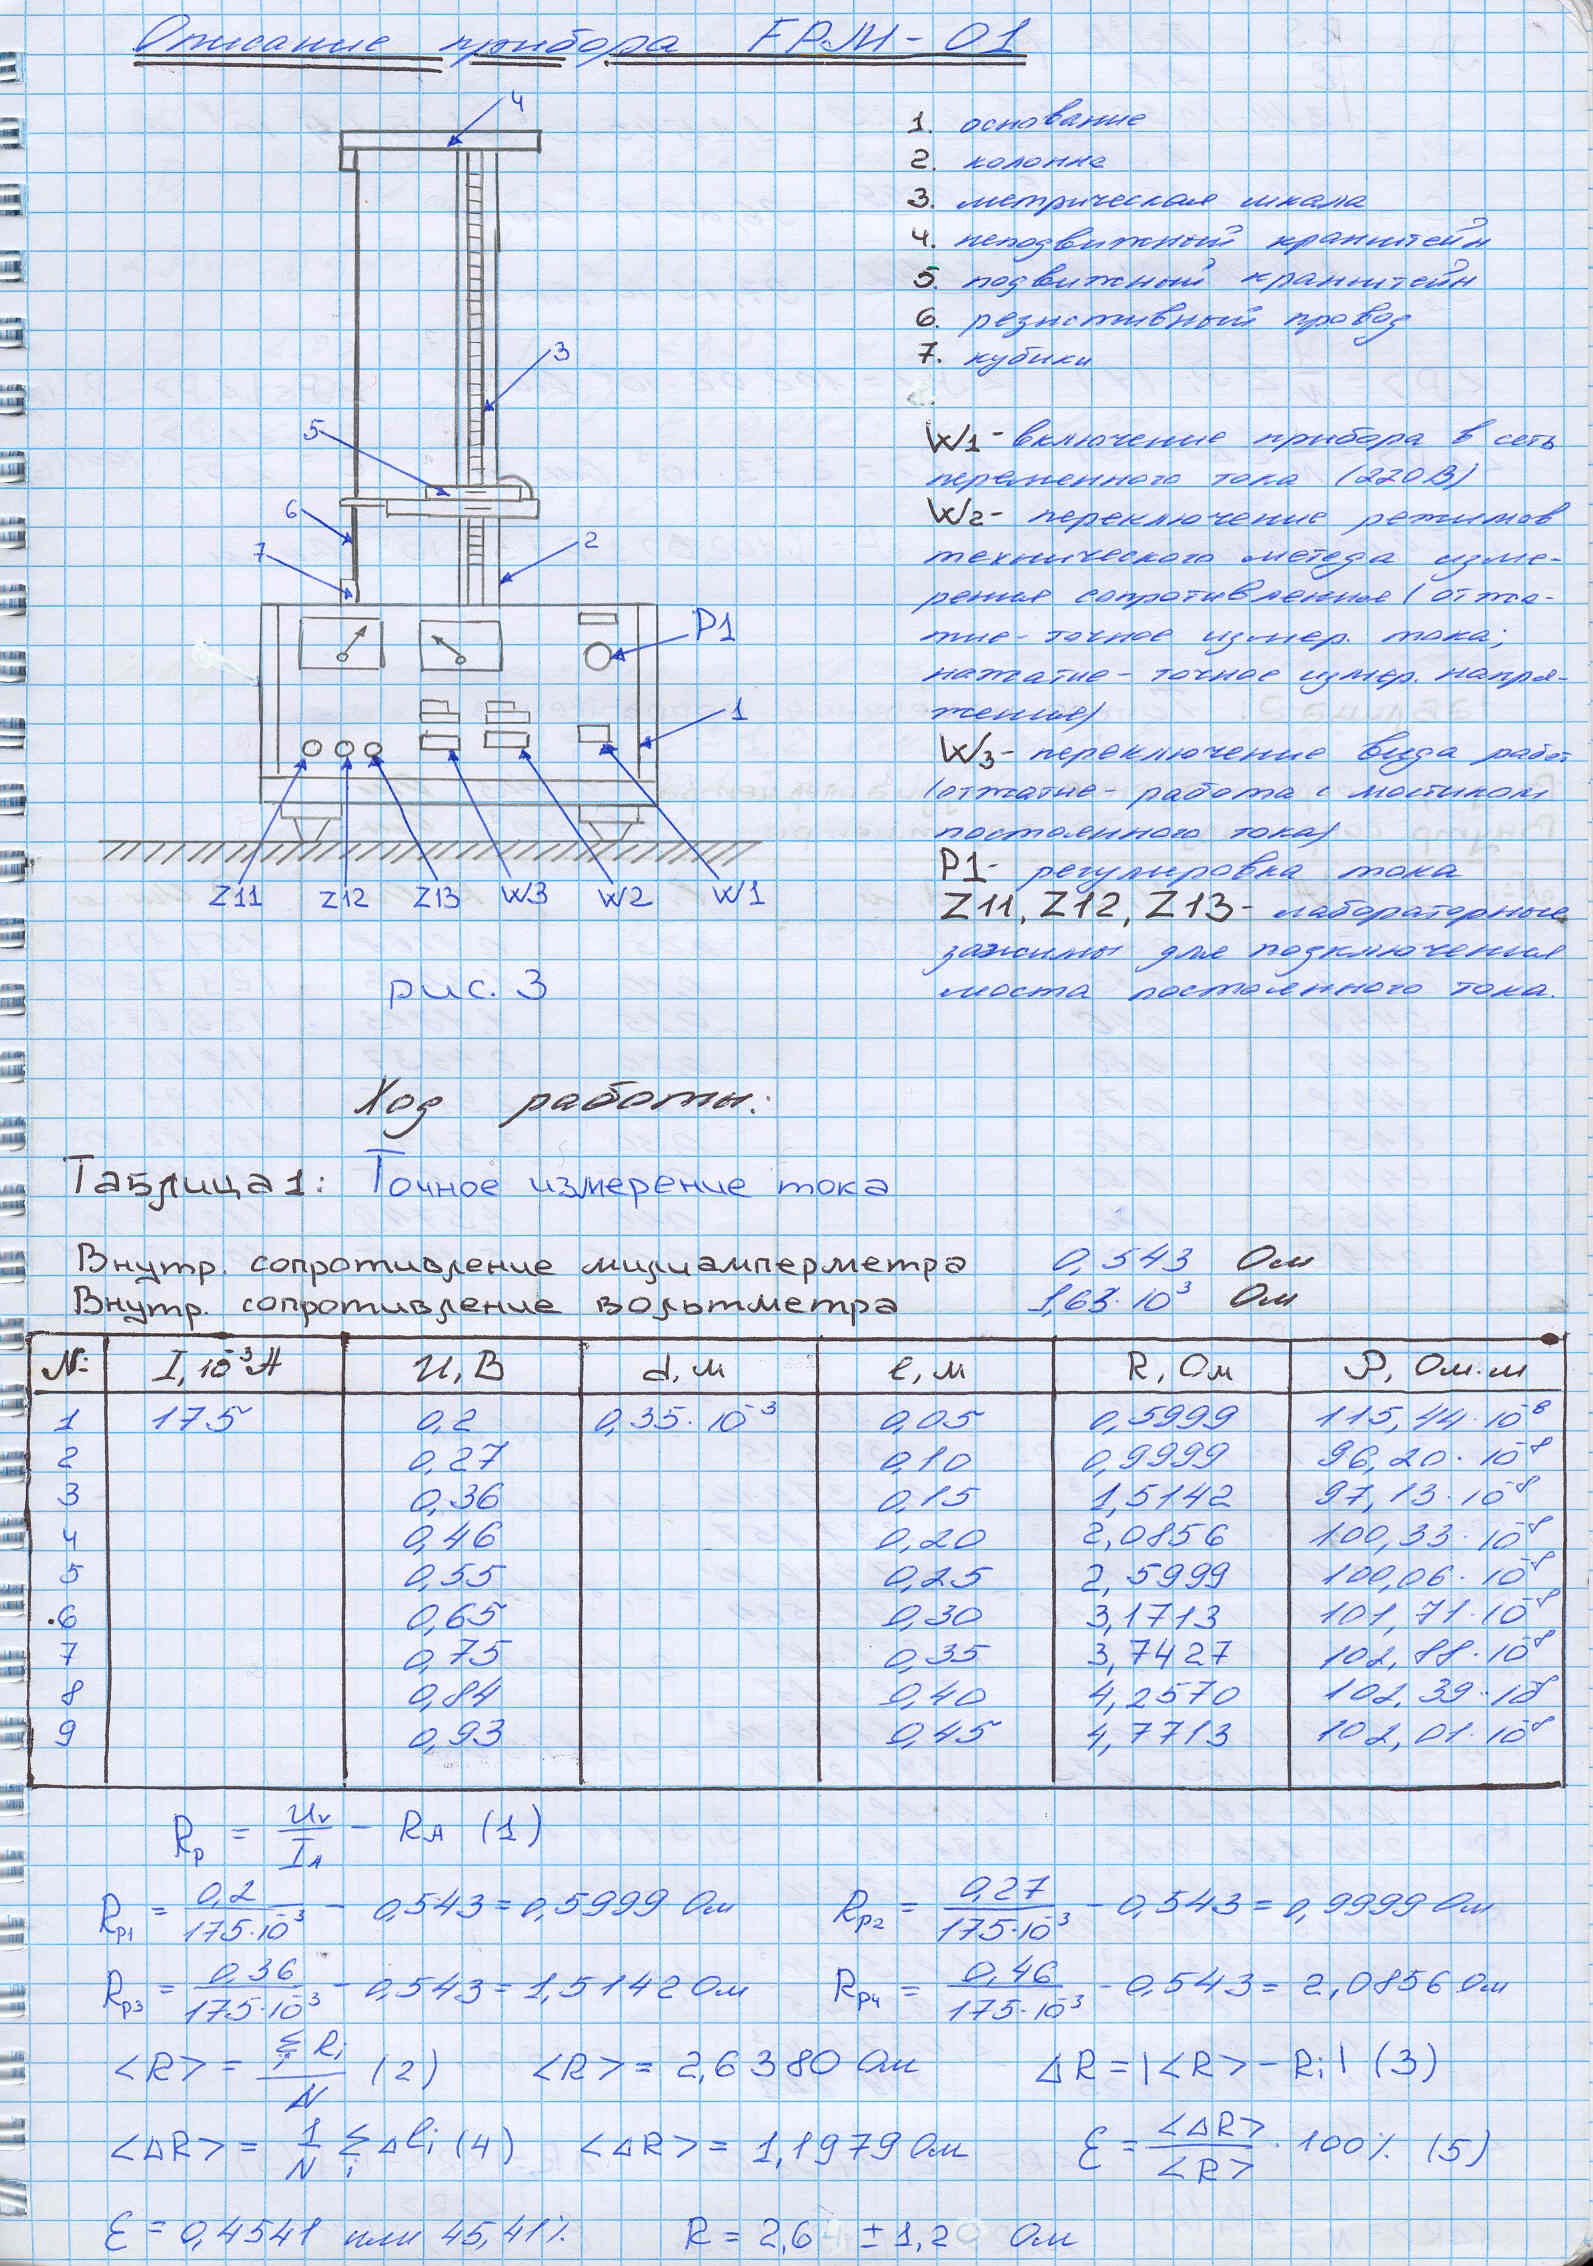 Описание прибора FPM-01
4
3
5
6
7
2
P1
1
Z11 Z12 Z13 W3 W2 W1
рис. 3
1. основание
2. колонна
3. метрическая шкала
4. неподвижный кранштейн
5. подвижный кранштейн
6. резистивный провод
7. кубики
W1- включение прибора в сеть
переменного тока (220В)
W2- переключение режимов
технического метода изме-
рения сопротивления (отжа-
тие- точное измер. тока;
нажатие- точное измер. напря-
жения)
W3- переключение вида работ
(отжатие- работа с мостиком
постоянного тока)
P1- регулировка тока
Z11, Z12, Z13- лабораторные
зажимы для подключения
моста постоянного тока.
Ход работы:
Таблица 1: Точное измерение тока
Внутр. сопротивление милиамперметра 0,543 Ом
Внутр. сопротивление вольтметра 1,63·10³ Ом
№: I, 10⁻³A U, B d, м l, м R, Ом P, Ом·м
1 175 0,2 0,35·10⁻³ 0,05 0,5999 115,44·10⁻⁸
2 0,27 0,10 0,9999 96,20·10⁻⁸
3 0,36 0,15 1,5142 97,13·10⁻⁸
4 0,46 0,20 2,0856 100,33·10⁻⁸
5 0,55 0,25 2,5999 100,06·10⁻⁸
6 0,65 0,30 3,1713 101,71·10⁻⁸
7 0,75 0,35 3,7427 102,88·10⁻⁸
8 0,84 0,40 4,2570 102,39·10⁻⁸
9 0,93 0,45 4,7713 102,01·10⁻⁸
Rp = Uv/IA - RA (1)
Rp1 = 0,2/175·10⁻³ - 0,543 = 0,5999 Ом Rp2 = 0,27/175·10⁻³ - 0,543 = 0,9999 Ом
Rp3 = 0,36/175·10⁻³ - 0,543 = 1,5142 Ом Rp4 = 0,46/175·10⁻³ - 0,543 = 2,0856 Ом
<R> = Σi Ri/N (2) <R> = 2,6380 Ом ΔR = |<R> - Ri| (3)
<ΔR> = 1/N Σi Δli (4) <ΔR> = 1,1979 Ом ε = <ΔR>/<R> · 100% (5)
ε = 0,4541 или 45,41% R = 2,64 ± 1,20 Ом